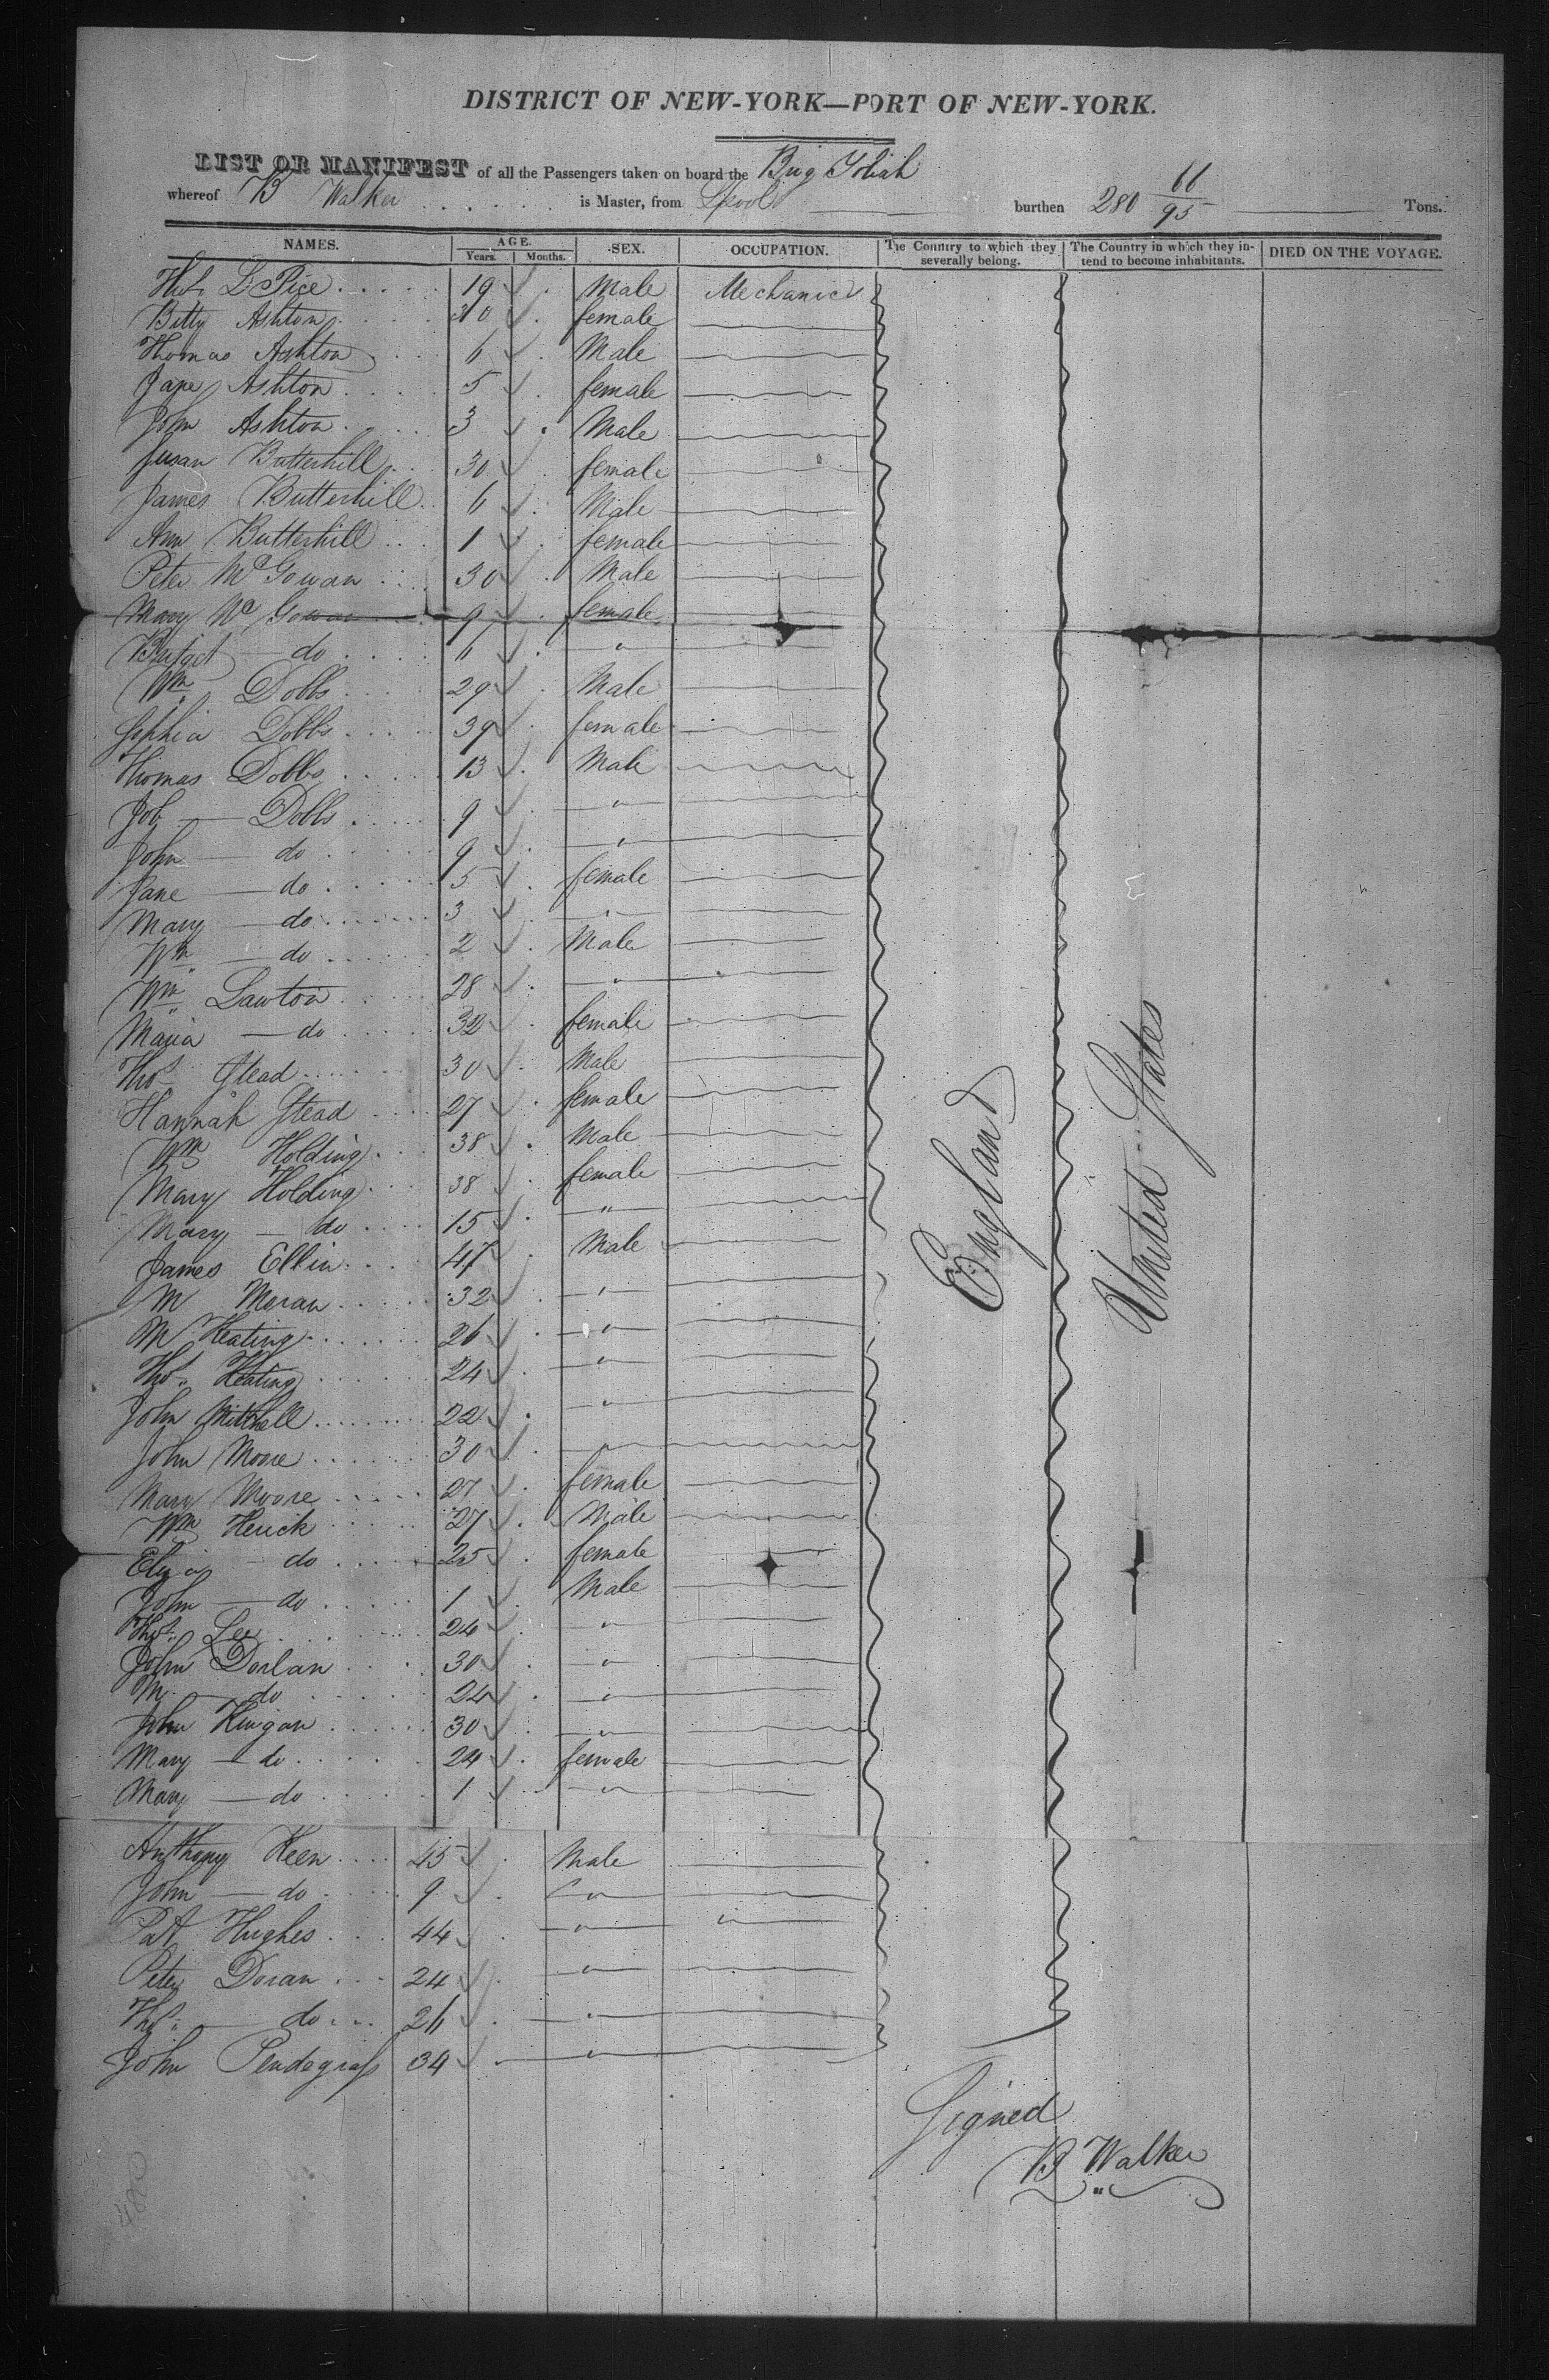 DISTRICT OF NEW-YORK—PORT OF NEW-YORK.
LIST OR MANIFEST of all the Passengers taken on board the Brig
whereof B Walker is Master, from Lpool burthen 280 66/95 Tons.
NAMES. AGE. Years. Months. SEX. OCCUPATION. The Country to which they severally belong. The Country in which they intend to become inhabitants. DIED ON THE VOYAGE.
19 Male Mechanic
Betty Ashton 30 female
Thomas Ashton 6 Male
Jane Ashton 5 female
John Ashton 3 Male
Susan Butterhill 30 female
James Butterhill 6 Male
Ann Butterhill 1 female
Peter Mc Gowan 30 Male
Mary Mc Gowan 9 female
do 6 "
Wm Dobbs 29 Male
Sophia Dobbs 39 female
Thomas Dobbs 13 Male
Job — Dobbs 9 "
John — do 9 "
Jane — do 5 female
Mary — do 3 "
Wm — do 2 Male
Wm Lawton 28 "
Maria — do 32 female
Thos Stead 30 Male
Hannah Stead 27 female
Wm Holding 38 Male
Mary Holding 38 female
Mary — do 15 "
James Ellin 47 Male
M Moran 32 "
M Keating 26 "
Thos Keating 24 "
John Mitchell 22 "
John Moore 30 "
Mary Moore 27 female
Wm 27 Male
Eliza do 25 female
John — do 1 Male
Thos Lee 24 "
John Dorlan 30 "
M — do 24 "
John 30 "
Mary — do 24 female
Mary — do 1 "
Anthony Keen 45 Male
John — do 9 "
Pat Hughes 44 " "
Peter Doran 24 "
Thos — do 26 "
John Pendegrass 34 "
England
United States
Signed
B Walker
480